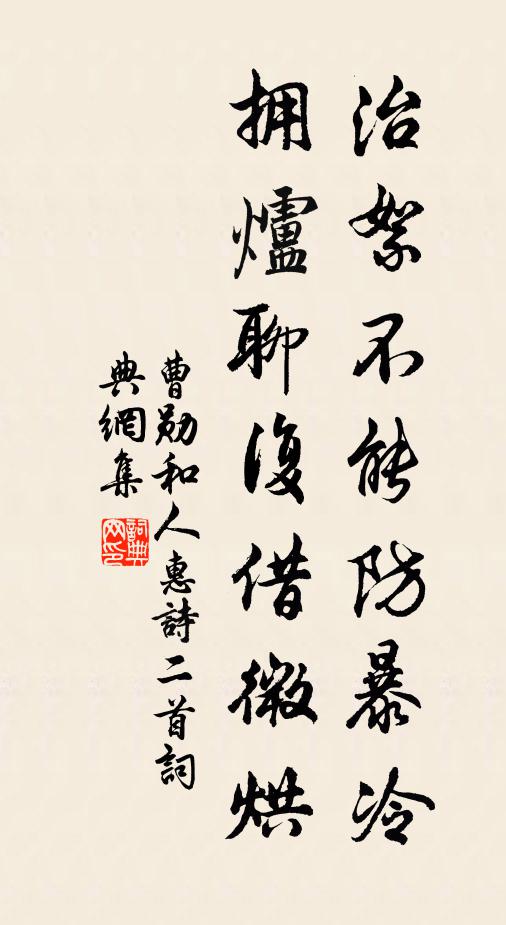 治絮不能防暴冷
拥爐聊復借微烘
曹勛和人惠詩二首詞
典網集
詞典網印